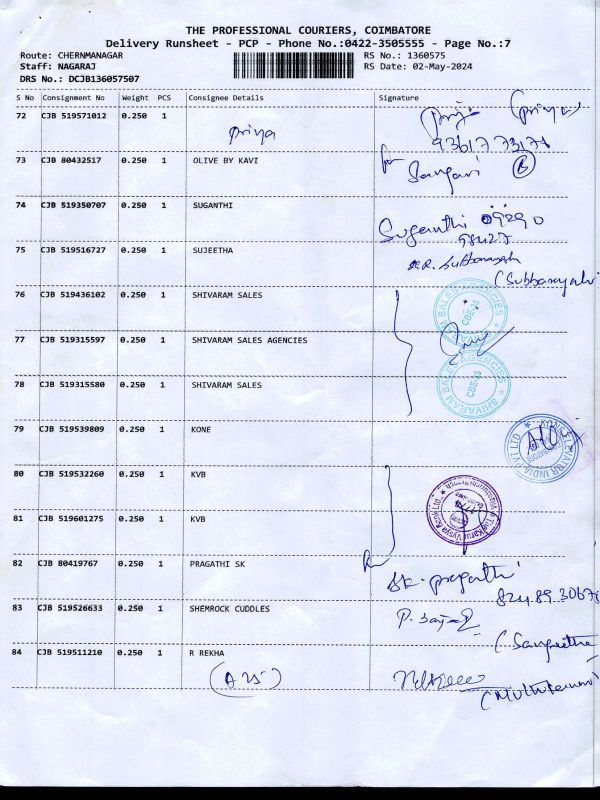 THE PROFESSIONAL COURIERS, COIMBATORE
Delivery Runsheet - PCP - Phone No.:0422-3505555 - Page No.:7
Route: CHERNMANAGAR
Staff: NAGARAJ
DRS No.: DCJB136057507
RS No.: 1360575
RS Date: 02-May-2024
S No Consignment No Weight PCS Consignee Details Signature
72 CJB 519571012 0.250 1
Priya
(Priya)
73 CJB 80432517 0.250 1 OLIVE BY KAVI
for Sangavi
74 CJB 519350707 0.250 1 SUGANTHI
Suganthi 09290
98427
75 CJB 519516727 0.250 1 SUJEETHA
(Subbarayalu)
76 CJB 519436102 0.250 1 SHIVARAM SALES
77 CJB 519315597 0.250 1 SHIVARAM SALES AGENCIES
78 CJB 519315580 0.250 1 SHIVARAM SALES
SHIVARAM SALES AGENCIES
CBE-35
79 CJB 519539809 1 KONE
KONE ELEVATOR INDIA PVT LTD
80 CJB 519532260 0.250 1 KVB
The Karur Vysya Bank Ltd.
81 CJB 519601275 0.250 1 KVB
82 CJB 80419767 0.250 1 PRAGATHI SK
SK. Pragathi
83 CJB 519526633 0.250 1 SHEMROCK CUDDLES
(Sangeetha
84 CJB 519511210 0.250 1 R REKHA